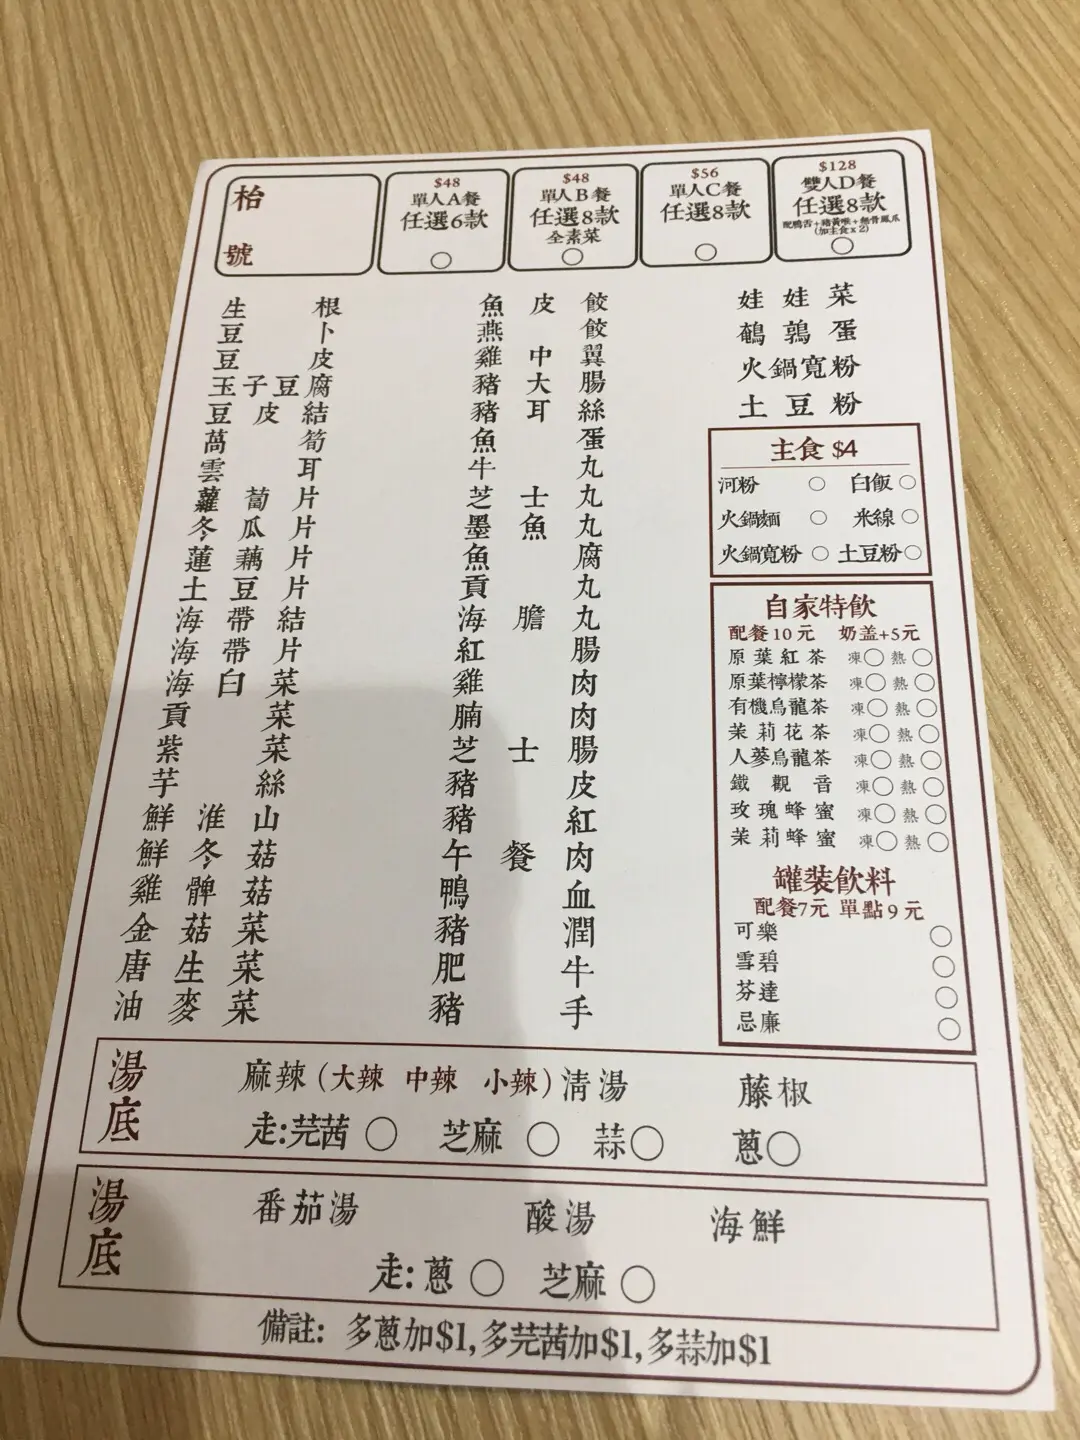 枱號
$48
單人A餐
任選6款
$48
單人B餐
任選8款
全素菜
$56
單人C餐
任選8款
$128
雙人D餐
任選8款
配鴨舌+豬黃喉+無骨鳳爪
(加主食x2)
生根
豆卜
豆皮
玉子豆腐
豆皮結
萬筍
雲耳
蘿蔔片
冬瓜片
蓮藕片
土豆片
海帶結
海帶片
海白菜
貢菜
紫菜
芋絲
鮮淮山
鮮冬菇
雞髀菇
金菇菜
唐生菜
油麥菜
魚皮餃
燕餃
雞中翼
豬大腸
豬耳絲
魚蛋
牛丸
芝士丸
墨魚丸
魚腐
貢丸
海膽丸
紅腸
雞肉
腩肉
芝士腸
豬皮
豬紅
午餐肉
鴨血
豬潤
肥牛
豬手
娃娃菜
鵪鶉蛋
火鍋寬粉
土豆粉
主食 $4
河粉 白飯
火鍋麵 米線
火鍋寬粉 土豆粉
自家特飲
配餐10元 奶盖+5元
原葉紅茶 凍 熱
原葉檸檬茶 凍 熱
有機烏龍茶 凍 熱
茉莉花茶 凍 熱
人蔘烏龍茶 凍 熱
鐵觀音 凍 熱
玫瑰蜂蜜 凍 熱
茉莉蜂蜜 凍 熱
罐裝飲料
配餐7元 單點9元
可樂
雪碧
芬達
忌廉
湯底
麻辣(大辣 中辣 小辣) 清湯 藤椒
走:芫茜 芝麻 蒜 蔥
湯底
番茄湯 酸湯 海鮮
走:蔥 芝麻
備註: 多蔥加$1,多芫茜加$1,多蒜加$1